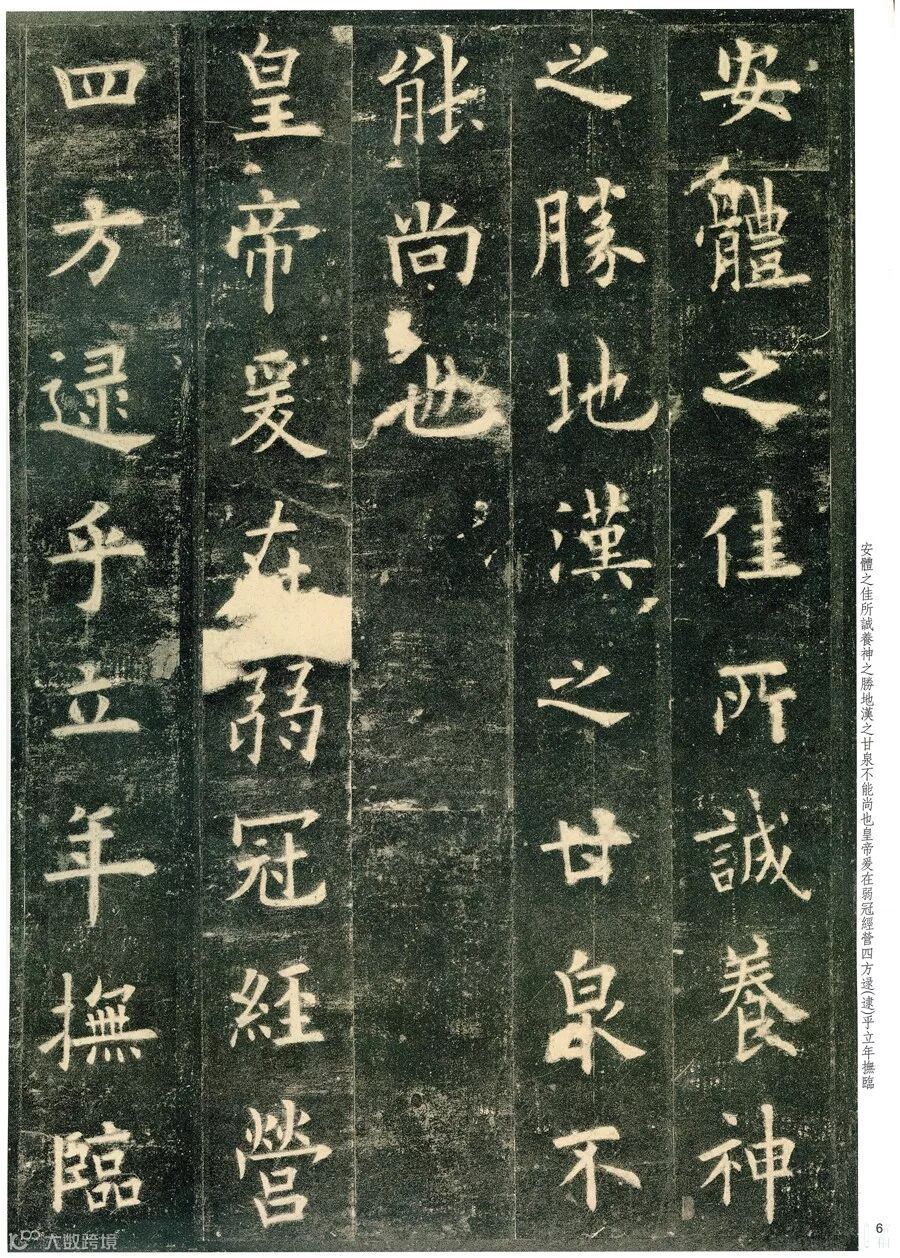 安體之佳所誠養神
之勝地漢之甘泉不
能尚也
皇帝爰在弱冠經營
四方逯乎立年撫臨
安體之佳所誠養神之勝地漢之甘泉不能尚也皇帝爰在弱冠經營四方逯(逮)乎立年撫臨
6
大数跨境